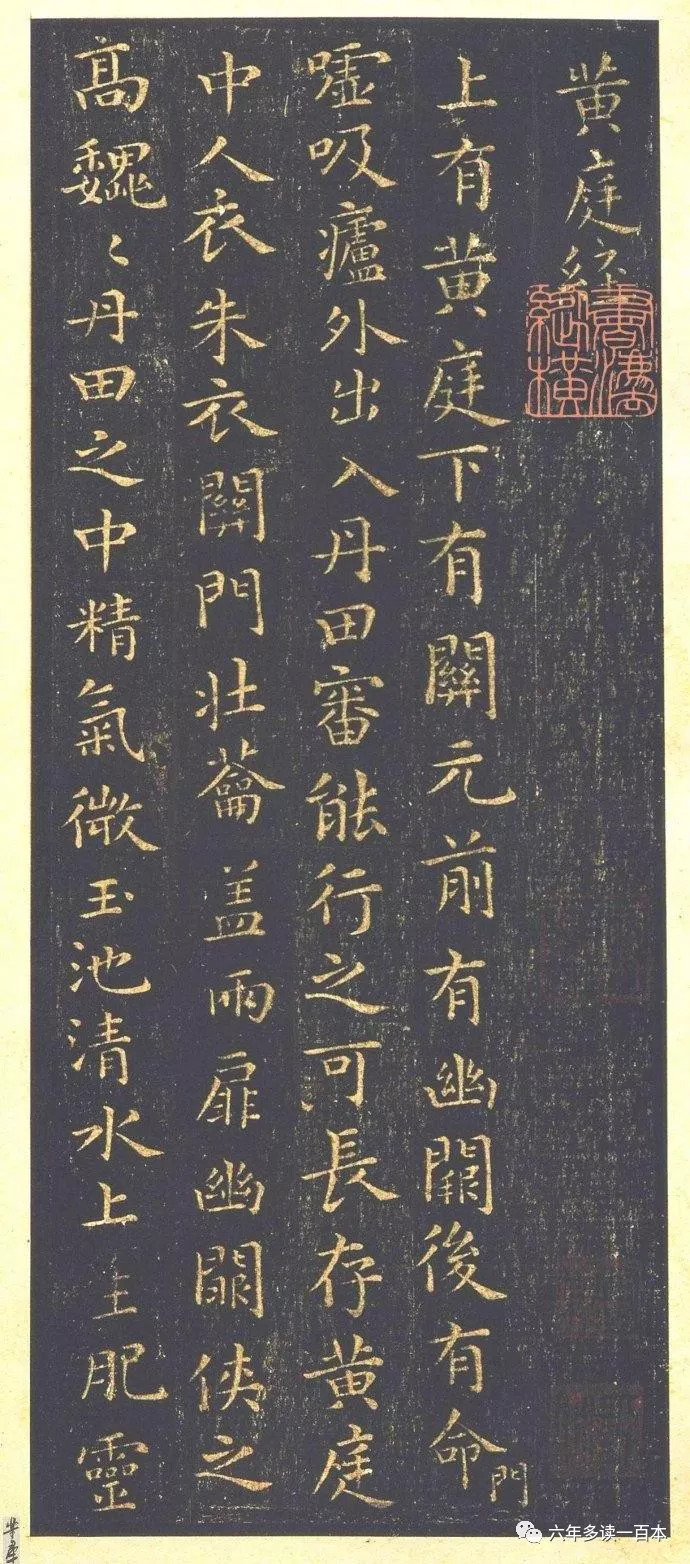 黃庭經
上有黃庭下有關元前有幽闕後有命門
噓吸廬外出入丹田審能行之可長存黃庭
中人衣朱衣關門壯蘥盖兩扉幽闕俠之
高巍〻丹田之中精氣微玉池清水上生肥靈
六年多读一百本